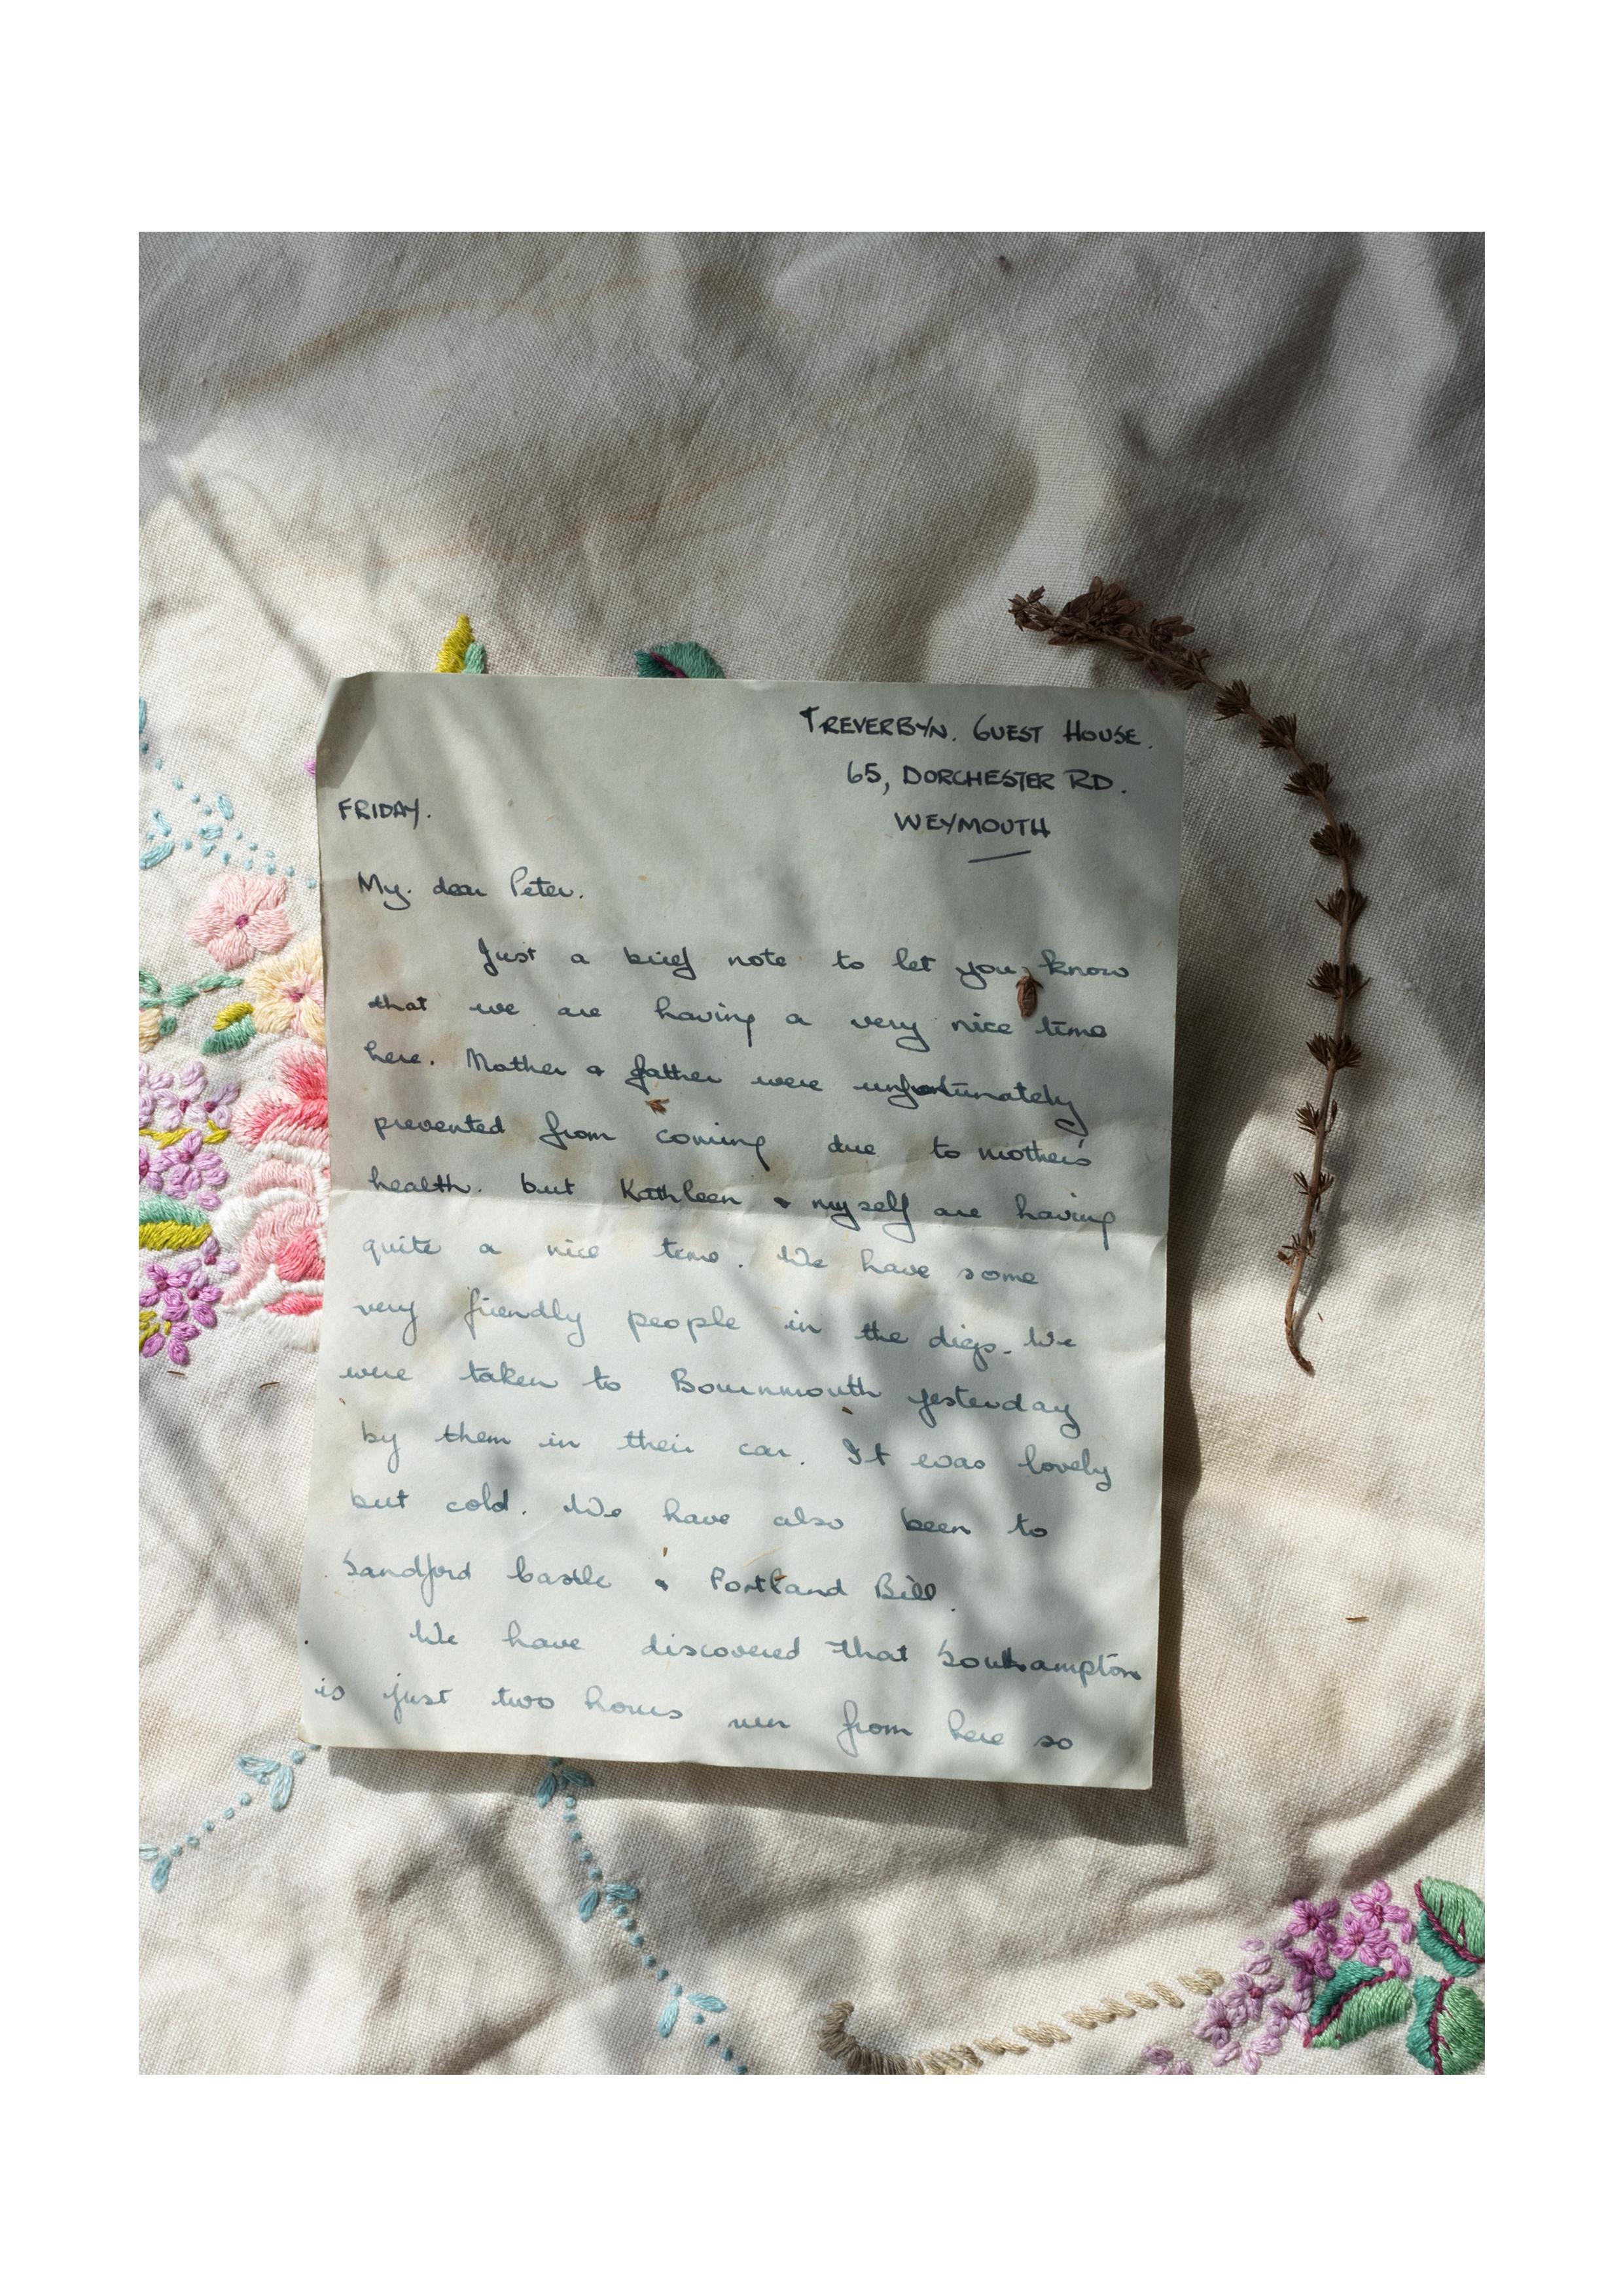 TREVERBYN. GUEST HOUSE.
65, DORCHESTER RD.
WEYMOUTH
FRIDAY.
My. dear Peter.
Just a brief note to let you know
that we are having a very nice time
here. Mother & father were unfortunately
prevented from coming due to mother's
health. but Kathleen & myself are having
quite a nice time. We have some
very friendly people in the digs. We
were taken to Bournmouth yesterday
by them in their car. It was lovely
but cold. We have also been to
Sandford Castle & Portland Bill.
We have discovered that Southampton
is just two hours run from here so